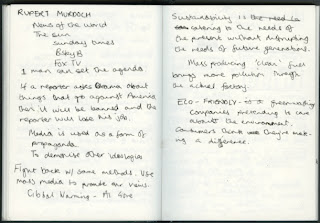 RUPERT MURDOCH
News of the World
The Sun
Sunday times
BSkyB
Fox TV
1 man can set the agenda
If a reporter asks Obama about
things that go against America
then it will be banned and the
reporter will lose his job.
Media is used as a form of
propaganda.
To demonise other ideologies
Fight back w/ same methods. Use
mass media to promote our views.
Global Warming - Al Gore
Sustainability is
catering to the needs of
the present without disrupting
the needs of future generations.
Mass producing 'clean' fuels
brings more pollution through
the actual factory.
ECO-FRIENDLY greenwashing
companies pretending to care
about the environment.
Consumers think they're mak-
ing a difference.